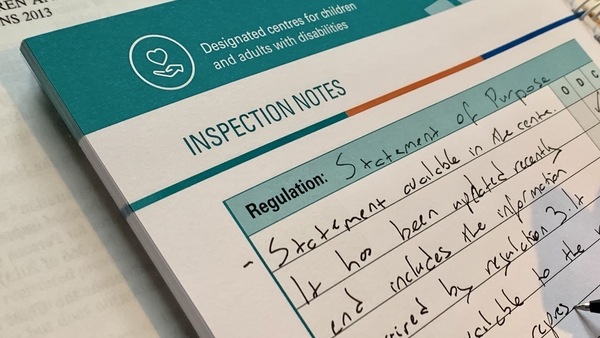 NS 2013
Designated centres for children
and adults with disabilities
INSPECTION NOTES
Regulation: Statement of Purpose
O D C
- Statement available in the centre.
It has been updated recently
and includes the information
by regulation 3. It
to the